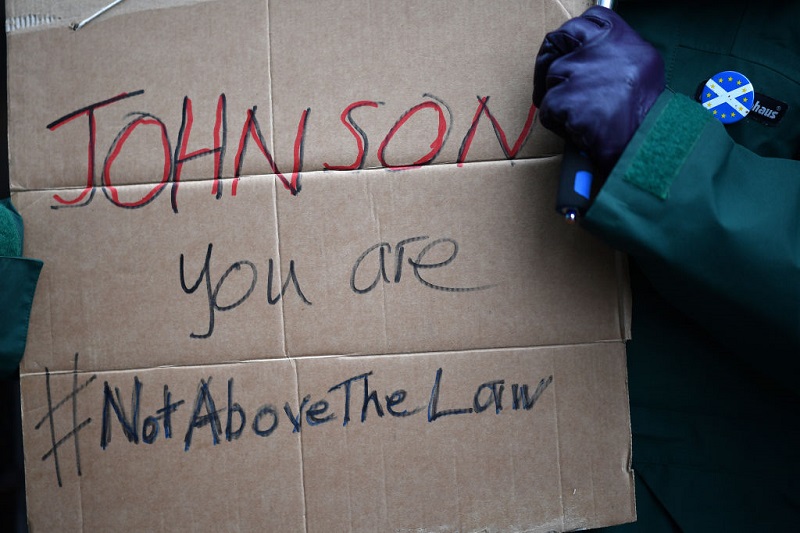 JOHNSON
you are
#NotAboveTheLaw
haus